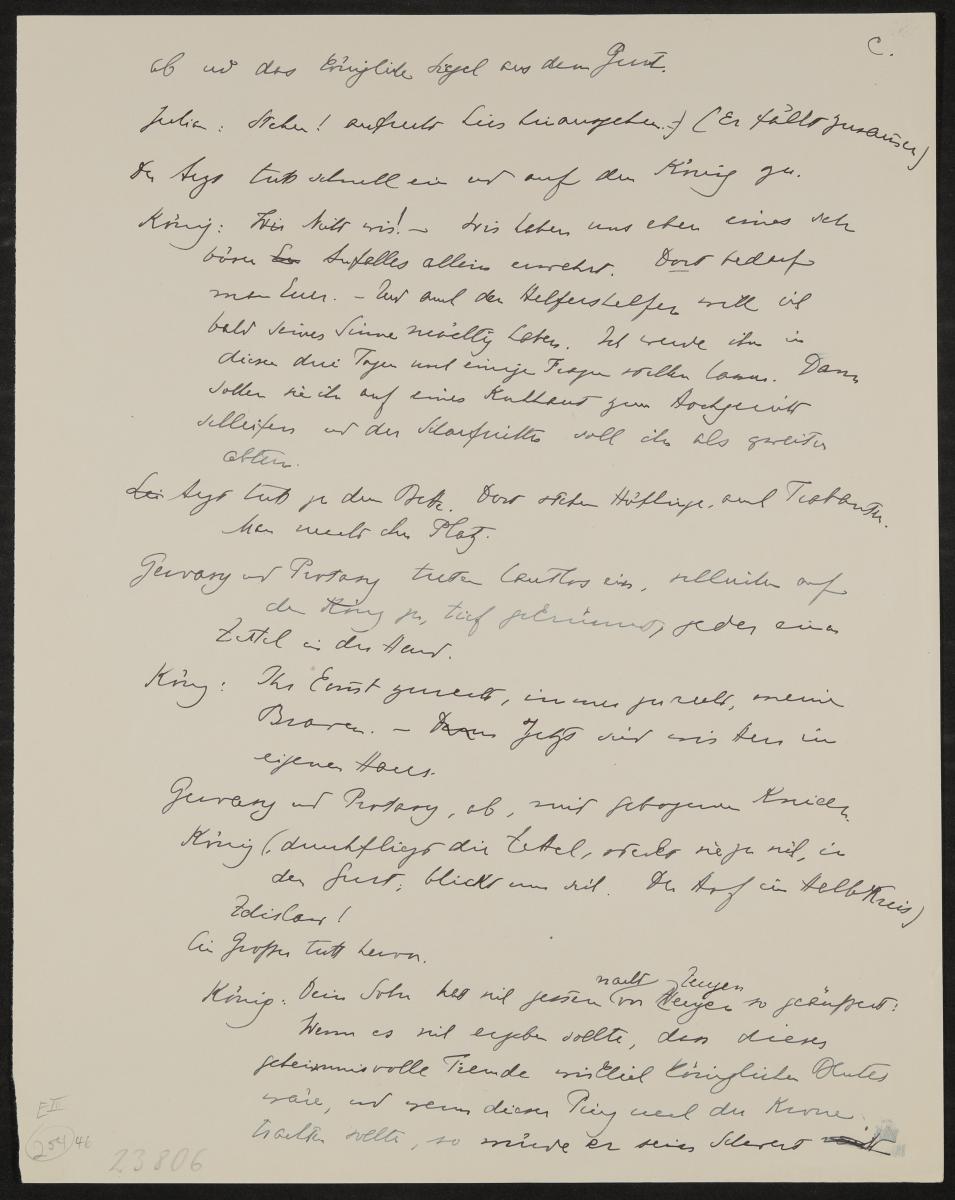 C.
ab und das königliche Siegel aus dem Gurt.
Julian: Stehen! aufrecht hinausgehen. –) (Er fällt zusammen)
Der Arzt tritt schnell ein und auf den König zu.
König: Nicht wir! – Wir haben uns eben eines sehr
bösen Anfalles allein erwehrt. Dort bedarf
man Euer. – Und auch der Helfershelfer will ich
bald seiner Sinne mächtig haben. Ich werde ihm in
diesen drei Tagen noch einige Fragen stellen lassen. Dann
sollen sie ihn auf einer Kuhhaut zum Hochgericht
schleifen und der Scharfrichter soll ihn als zweiten
abtun.
Arzt tritt zu dem Bette. Dort stehen Höflinge, auch Trabanten.
Man macht ihm Platz.
Gervasy und Protasy treten lautlos ein, schleichen auf
den König zu, tief gekrümmt, jeder einen
Zettel in der Hand.
König: Ihr kommt zurecht, immer zurecht, meine
Braven. – Jetzt sind wir Herr im
eigenen Haus.
Gervasy und Protasy, ab, mit gebogenen Knieen.
König (durchfliegt die Zettel, steckt sie zu sich, in
den Gurt; blickt um sich. Der Hof im Halbkreis)
Zdislaw!
Ein Großer tritt hervor.
König: Dein Sohn hat sich gestern nacht vor Zeugen so geäußert:
Wenn es sich ergeben sollte, dass dieser
geheimnisvolle Fremde wirklich königlichen Blutes
wäre, und wenn dieser Prinz nach der Krone
trachten sollte, so würde er sein Schwert
E III
254 46
23806